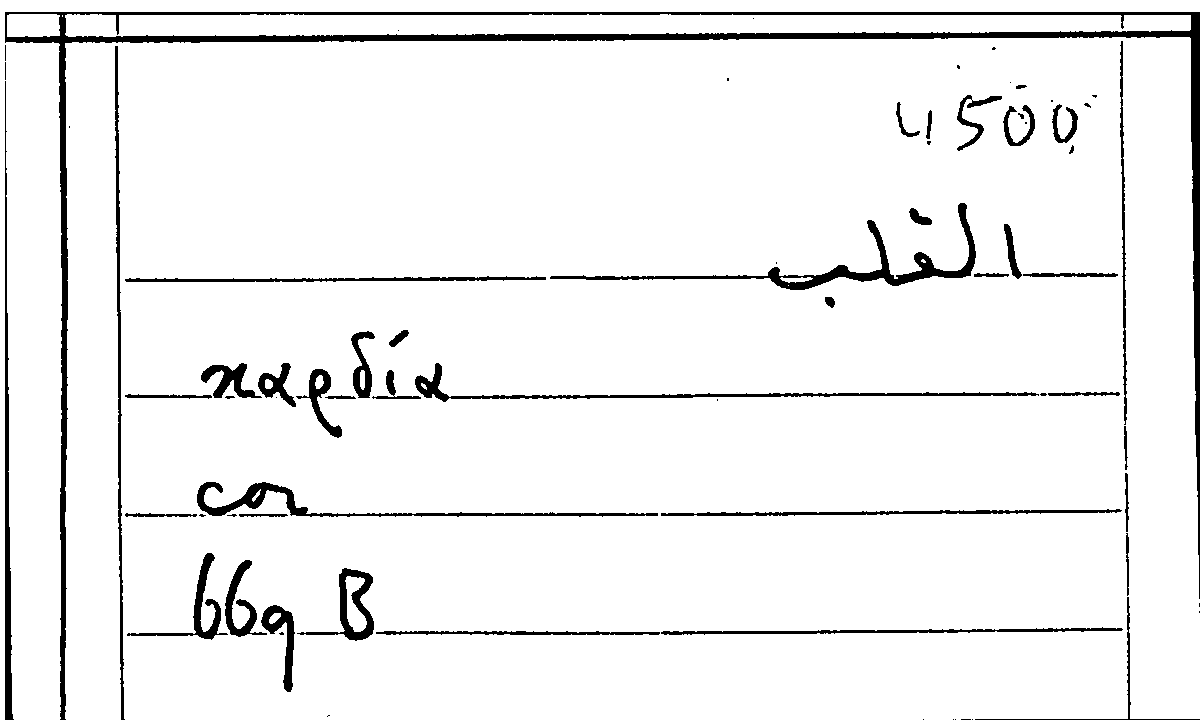 4500
القلب
καρδία
cor
669 B